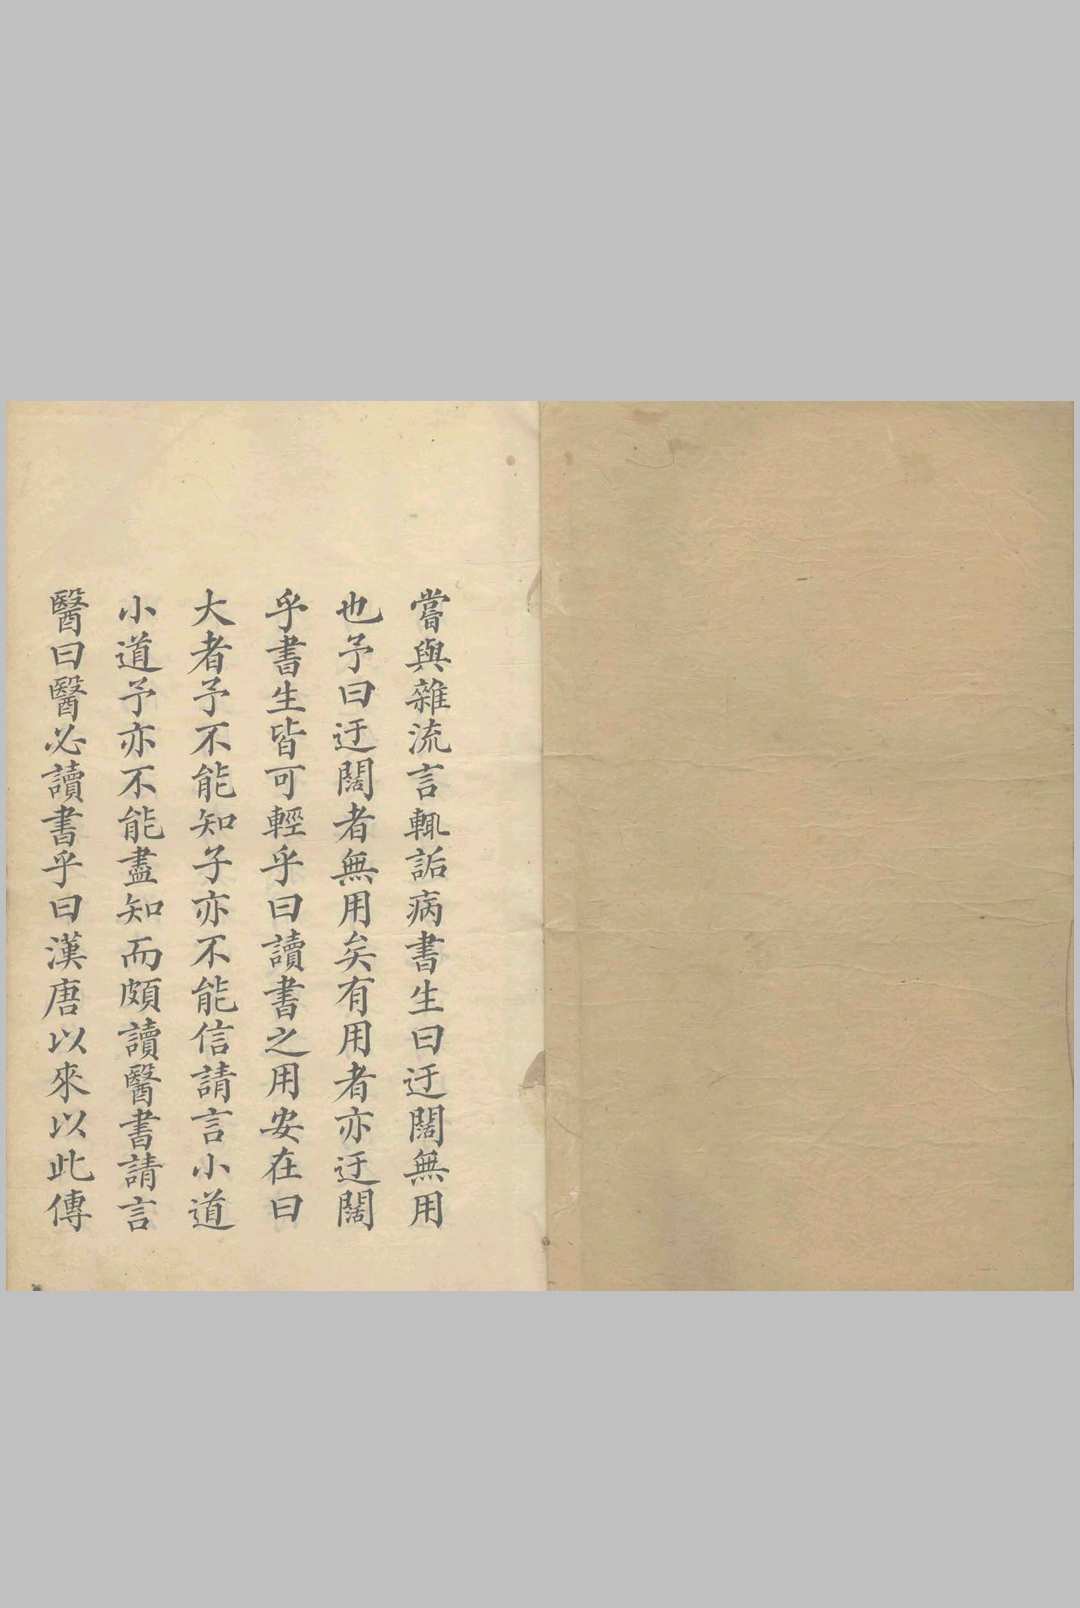 嘗與雜流言輒詬病書生曰迂闊無用
也予曰迂闊者無用矣有用者亦迂闊
乎書生皆可輕乎曰讀書之用安在曰
大者予不能知子亦不能信請言小道
小道予亦不能盡知而頗讀醫書請言
醫曰醫必讀書乎曰漢唐以來以此傳